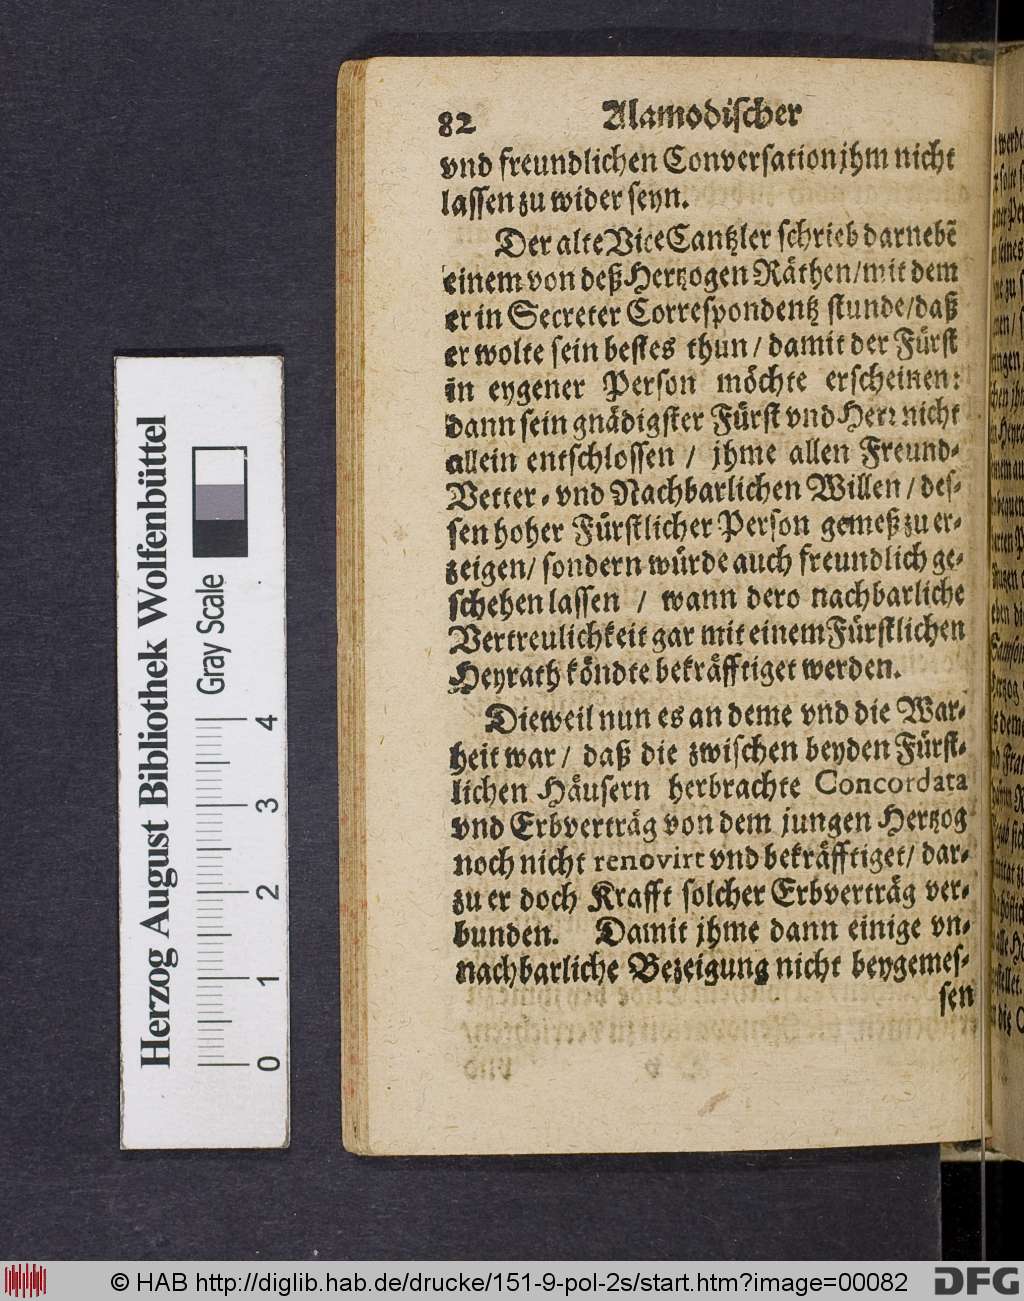 82 Alamodischer
vnd freundlichen Conversation jhm nicht
lassen zu wider seyn.
Der alte Vice Cantzler schrieb darnebẽ
einem von deß Hertzogen Räthen/ mit dem
er in Secreter Correspondentz stunde/ daß
er wolte sein bestes thun/ damit der Fürst
in eygener Person möchte erscheinen:
dann sein gnädigster Fürst vnd Herr nicht
allein entschlossen/ jhme allen Freund-
Vetter- vnd Nachbarlichen Willen/ des-
sen hoher Fürstlicher Person gemeß zu er-
zeigen/ sondern würde auch freundlich ge-
schehen lassen/ wann dero nachbarliche
Vertreulichkeit gar mit einem Fürstlichen
Heyrath köndte bekräfftiget werden.
Dieweil nun es an deme vnd die War-
heit war/ daß die zwischen beyden Fürst-
lichen Häusern herbrachte Concordata
vnd Erbverträg von dem jungen Hertzog
noch nicht renovirt vnd bekräfftiget/ dar-
zu er doch Krafft solcher Erbverträg ver-
bunden. Damit jhme dann einige vn-
nachbarliche Bezeigung nicht beygemes-
sen
Herzog August Bibliothek Wolfenbüttel
Gray Scale
0 1 2 3 4
© HAB http://diglib.hab.de/drucke/151-9-pol-2s/start.htm?image=00082
DFG